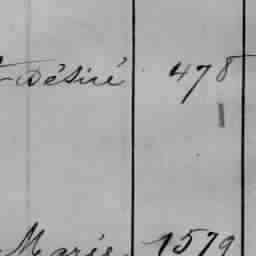 Désiré 478
Marie 1579